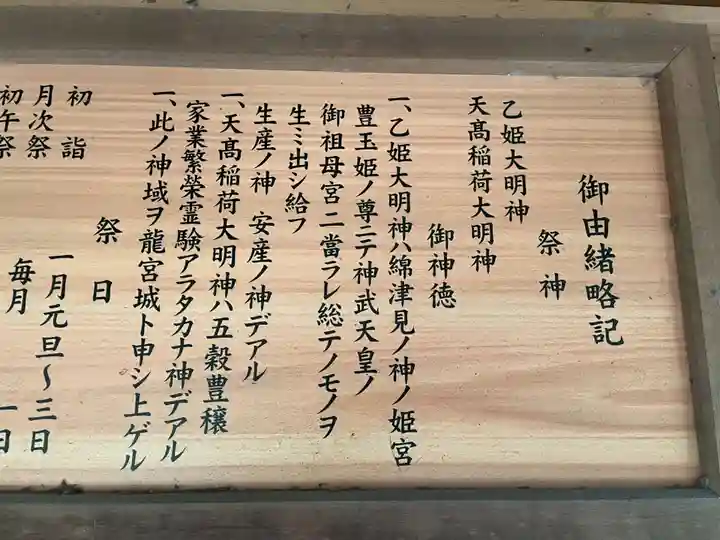 御由緒略記
祭神
乙姫大明神
天髙稲荷大明神
御神徳
一、乙姫大明神ハ綿津見ノ神ノ姫宮
豊玉姫ノ尊ニテ神武天皇ノ
御祖母宮ニ當ラレ総テノモノヲ
生ミ出シ給フ
生産ノ神 安産ノ神デアル
一、天髙稲荷大明神ハ五穀豊穣
家業繁榮霊験アラタカナ神デアル
一、此ノ神域ヲ龍宮城ト申シ上ゲル
祭日
初詣 一月元旦〜三日
月次祭 毎月 一日
初午祭